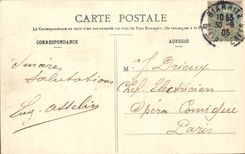 CARTE POSTALE
La Correspondance au verso n'est pas acceptée par tous les Pays Etrangers. (Se renseigner à la Poste)
CORRESPONDANCE
ADRESSE
Sincères
Salutations
Eug. Asselin
M J. Drieux
Chef Electricien
Opéra Comique
Paris
10 55
30
05